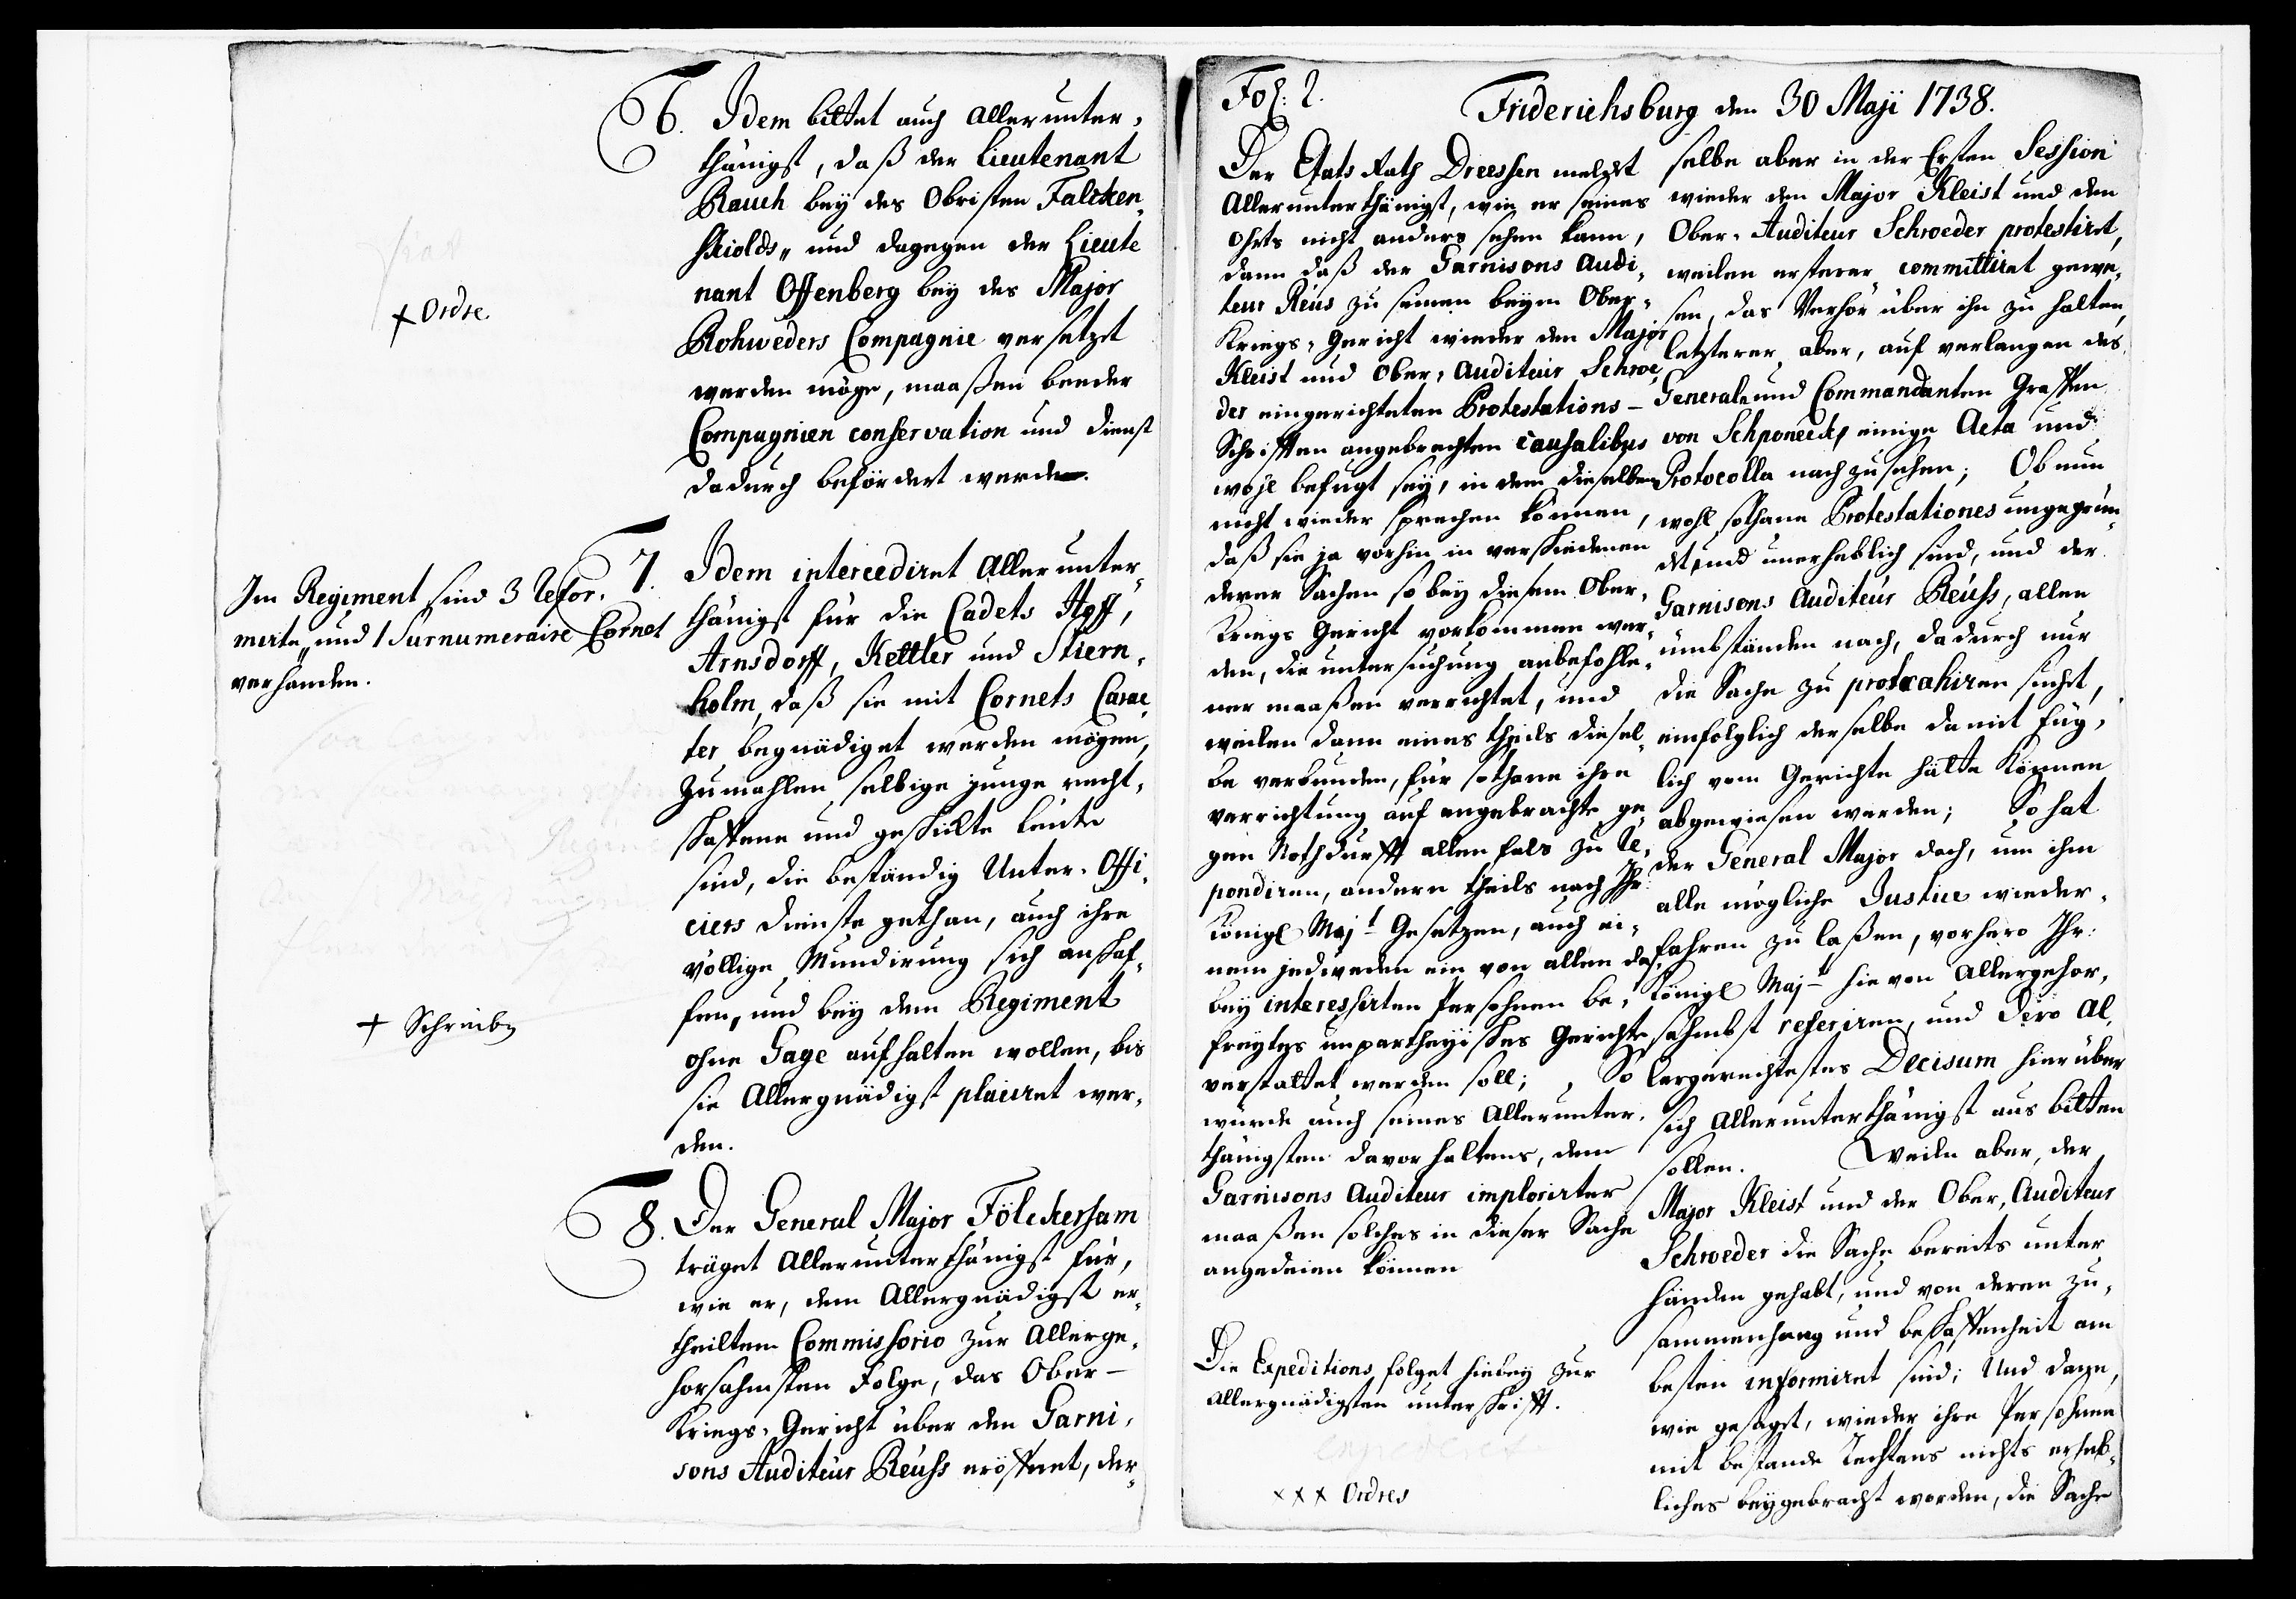 6. Idem bittet auch allerunter,
thänigst, daß der Lieutenant
Rauch bey des Obristen Falcken,
skiolds, und dagegen der Lieute
nant Offenberg bey des Major
Rohweders Compagnie versetzet
werden möge, maaßen beeder
Compagnien conservation und dienst
dadurch befördert werde.
+ Ordre.
7. Idem intercediret Allerunter,
thänigst für die Cadets Apff,
Arnsdorff, Kettler und Stiern,
holm, daß sie mit Cornets Carac,
ter begnädiget werden mögen,
zumahlen selbige junge recht,
schaffene und geschickte leute
sind, die beständig Unter-Offi,
ciers dienste gethan, auch ihre
völlige Mundirung sich anschaf,
fen, und bey dem Regiment
ohne Gage aufhalten wollen, bis
sie Allergnädigst placiret wer,
den.
Im Regiment sind 3 Refor,
mirte, und 1 Surnumeraire Cornet
verhanden.
+ Schreiben
8. Der General Major Fölckersam
träget Allerunterthänigst für,
wie er, dem Allergnädigst er,
theilten Commissorio zur Allerge,
horsahmsten Folge, das Ober-
Kriegs-Gericht über den Garni,
sons Auditeur Reuss eröffnet, der,
Fol: 2.
Friderichsburg den 30 Maji 1738.
Der Etats Rath Dreessen meldet
Allerunterthänigst, wie er seines
Ohrts nicht anders sehen kann,
dann daß der Garnisons Audi,
teur Reus zu seinen beym Ober,
Kriegs-Gericht wieder den Major
Kleist und Ober-Auditeur Schroe,
der eingerichteten Protestations-
Schrifften angebrachten Causalibus
wohl befugt sey, in dem dieselben
nicht wieder sprechen können,
daß sie ja vorhin in verschiedenen
derer Sachen so bey diesem Ober,
Kriegs Gericht vorkommen wer,
den, die untersuchung anbefohle,
ner maaßen verrichtet, und
weilen dann eines theils diesel,
be verbunden, für sothane ihre
verrichtung auf angebrachte ge,
gen Nothdurfft allenfals zu re,
pondiren, andern theils nach Ihr
Königl Majt Gesetzen, auch ei,
nem jedweden ein von allen da,
bey interessirten Persohnen be,
freytes unpartheyisches Gerichte
verstattet werden soll; So
würde auch seines Allerunter,
thänigsten davorhaltens, dem
Garnisons Auditeur implorirter
maaßen solches in dieser Sache
angedeien können
Die Expeditions folget hiebey zur
Allergnädigsten unterschrifft.
+++ Ordres
selbe aber in der Ersten Session
wieder den Major Kleist und den
Ober-Auditeur Schroeder protestiret,
weilen ersterer committiret gewe,
sen, das Verhör über ihn zu halten,
letzterer aber, auf verlangen des
General und Commandanten Graffen
von Schponeck einige Acta und
Protocolla nachzusehen; Ob nun
wohl sothane Protestationes ungegrün,
det und unerheblich sind, und der
Garnisons Auditeur Reuss, allen
umbständen nach, dadurch nur
die Sache zu protrahiren suchet,
einfolglich derselbe damit füg,
lich vom Gerichte hätte können
abgewiesen werden; So hat
der General Major doch, um ihm
alle mögliche Justice wieder,
fahren zu laßen, vorhero Ihr:
Königl Majt hievon Allergehor,
sahmbst referiren, und Dero Al,
lergerechtestes Decisum hierüber
sich Allerunterthänigst aus bitten
sollen. Weiln aber, der
Major Kleist und der Ober, Auditeur
Schroeder die Sache bereits unter
händen gehabt, und von deren zu,
sammenhang und beschaffenheit am
besten informiret sind; Und dann,
wie gesaget, wieder ihre Persohnen
mit bestande Rechtens nichts erheb,
liches beygebracht worden, die Sache